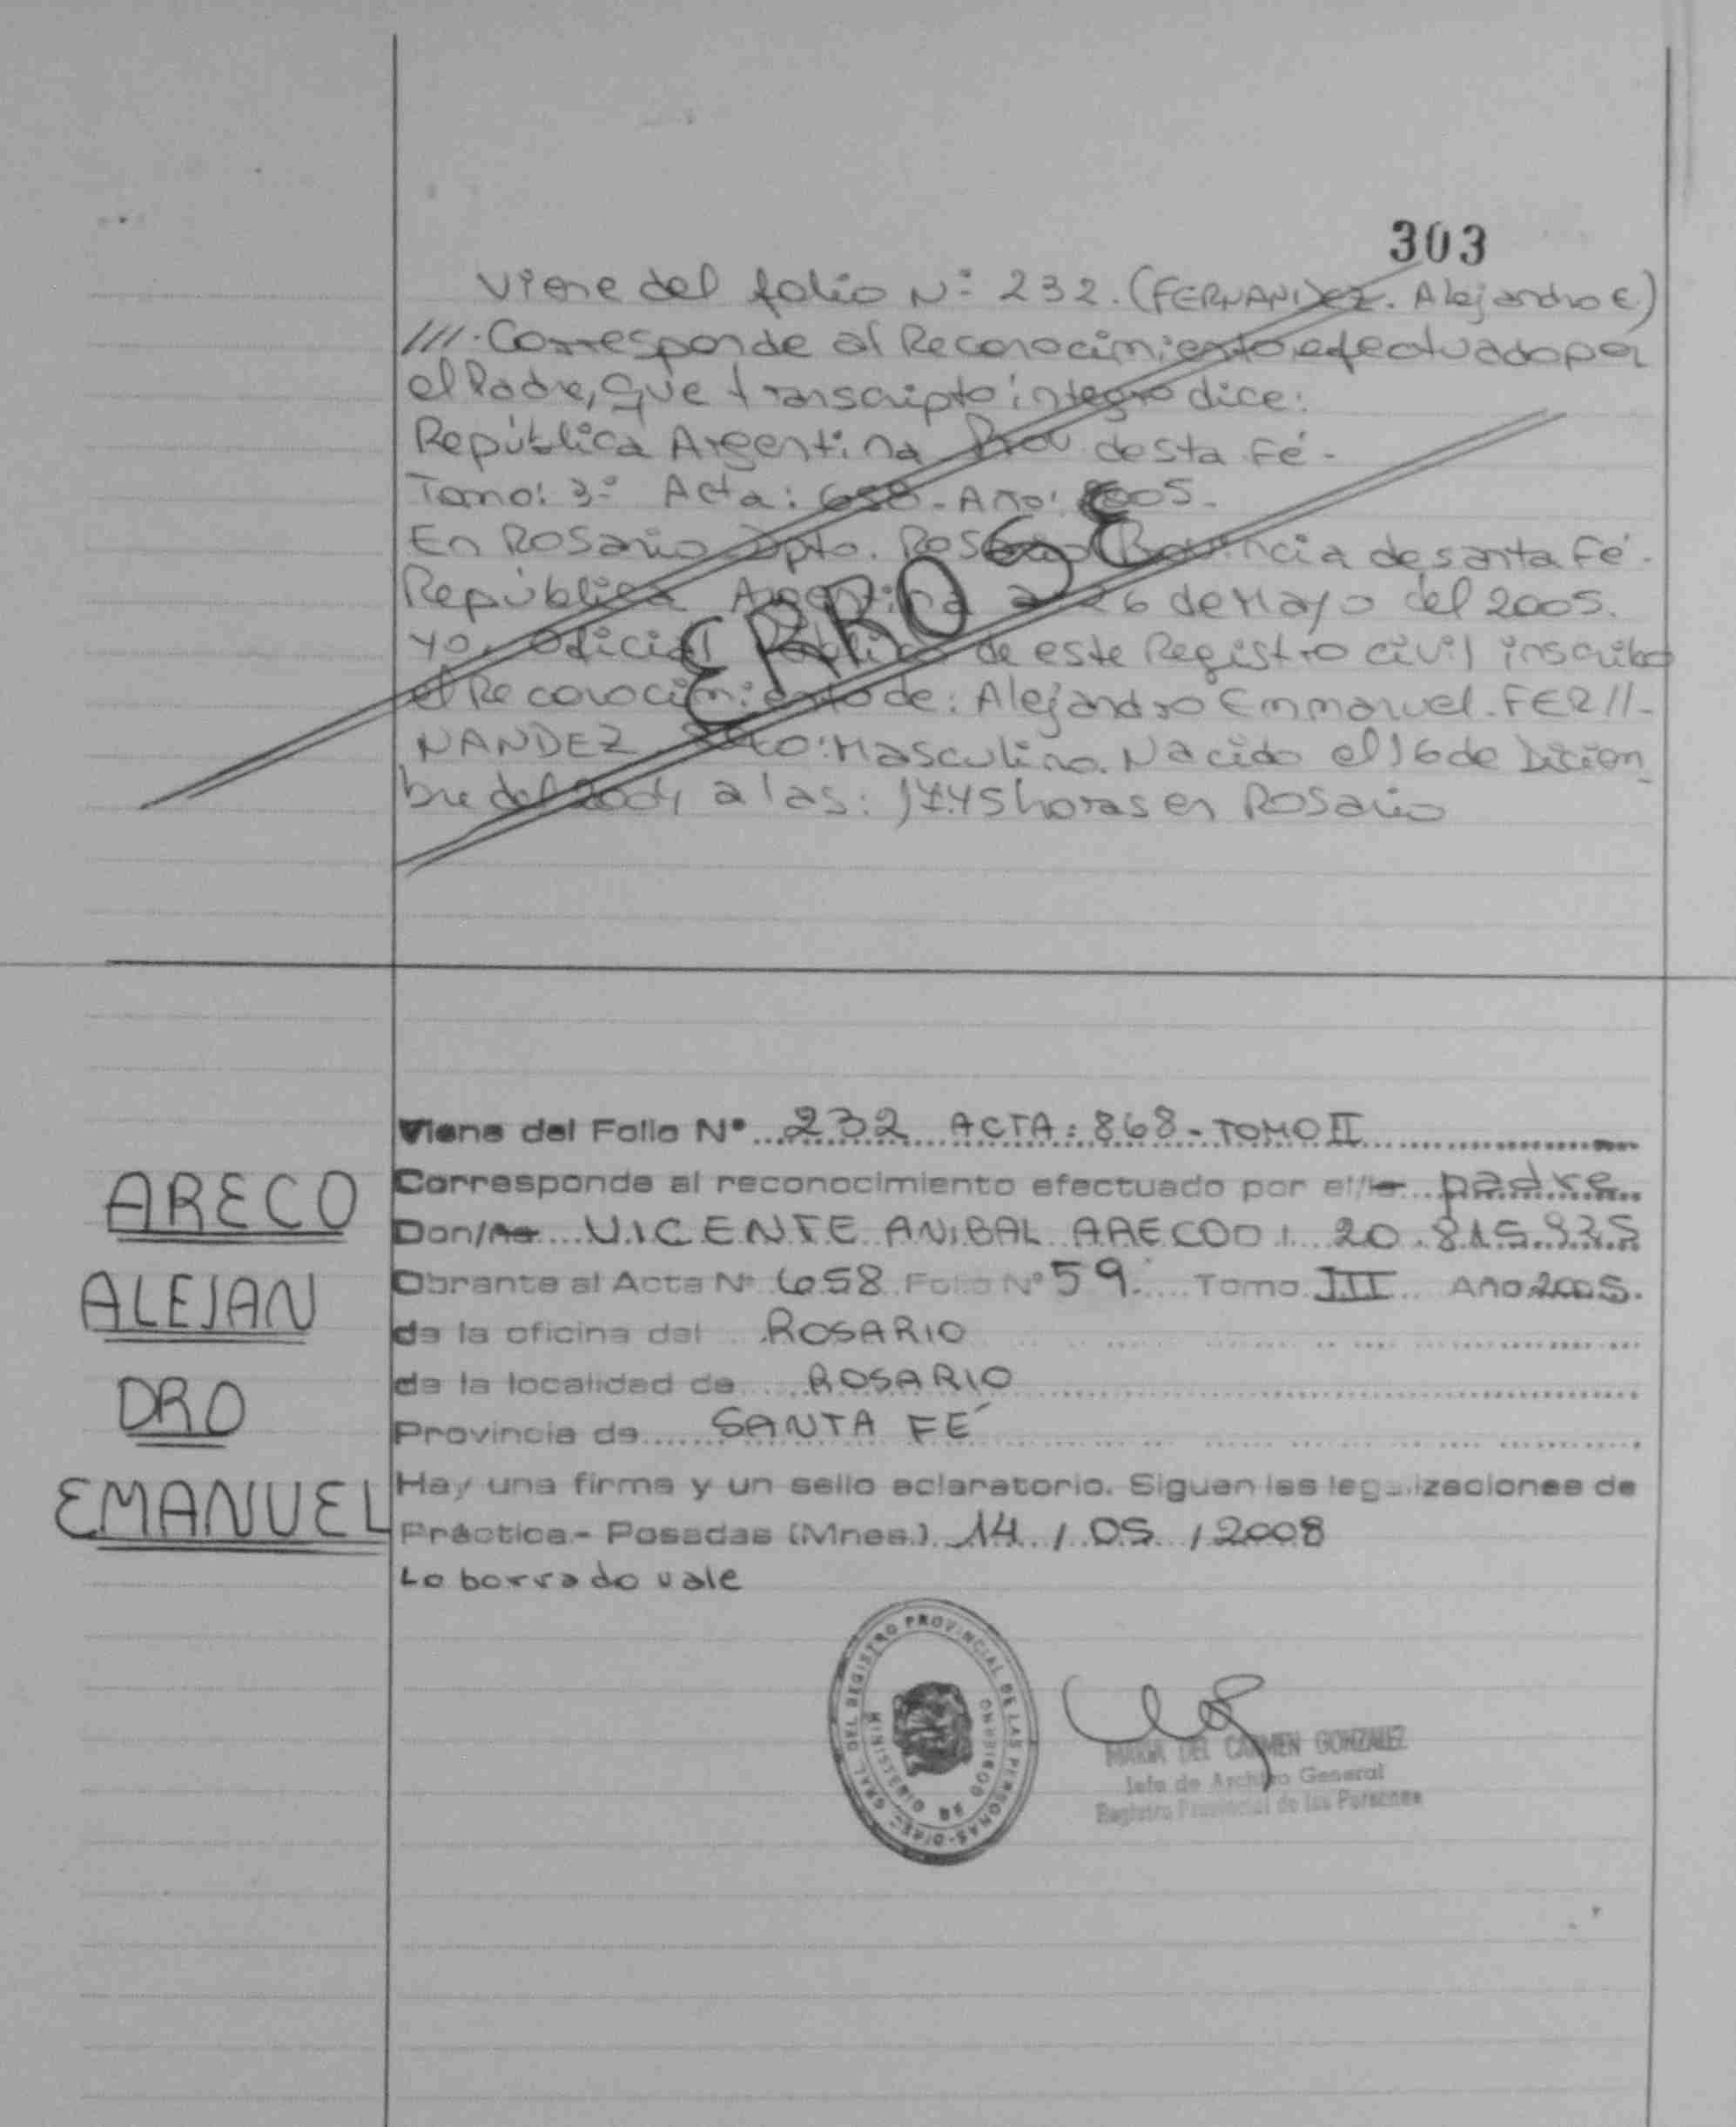 303
Viene del folio Nº 232. (FERNANDEZ. Alejandro E.)
///. Corresponde al Reconocimiento efectuado por
el Padre, que transcripto integro dice:
República Argentina Prov. de sta Fé.-
Tomo: 3º Acta: 658 - Año: 2005.
En Rosario Dpto. Rosario Provincia de santa Fé.
República Argentina a 26 de Mayo del 2005.
yo, Oficial Público de este Registro civil inscribo
el Reconocimiento de: Alejandro Emmanuel. FER//-
NANDEZ. Sexo: Masculino. Nacido el 16 de Diciem_
bre del 2004 a las: 17.45 horas en Rosario
ERROSE
Viene del Folio Nº 232 ACTA: 868 - TOMO II
Corresponde al reconocimiento efectuado por el/la padre
Don/ña VICENTE ANIBAL ARECO D I 20.815.935
Obrante al Acta Nº 658 Folio Nº 59. Tomo III Año 2005.
de la oficina del ROSARIO
de la localidad de ROSARIO
Provincia de SANTA FÉ
Hay una firma y un sello aclaratorio. Siguen las legalizaciones de
Práctica.- Posadas (Mnes.) 14 / 05 / 2008
Lo borrado vale
ARECO
ALEJAN
DRO
EMANUEL
DIREC. GRAL. DEL REGISTRO PROVINCIAL DE LAS PERSONAS
MINISTERIO DE GOBIERNO
MARIA DEL CARMEN GONZALEZ
Jefe de Archivo General
Registro Provincial de las Personas